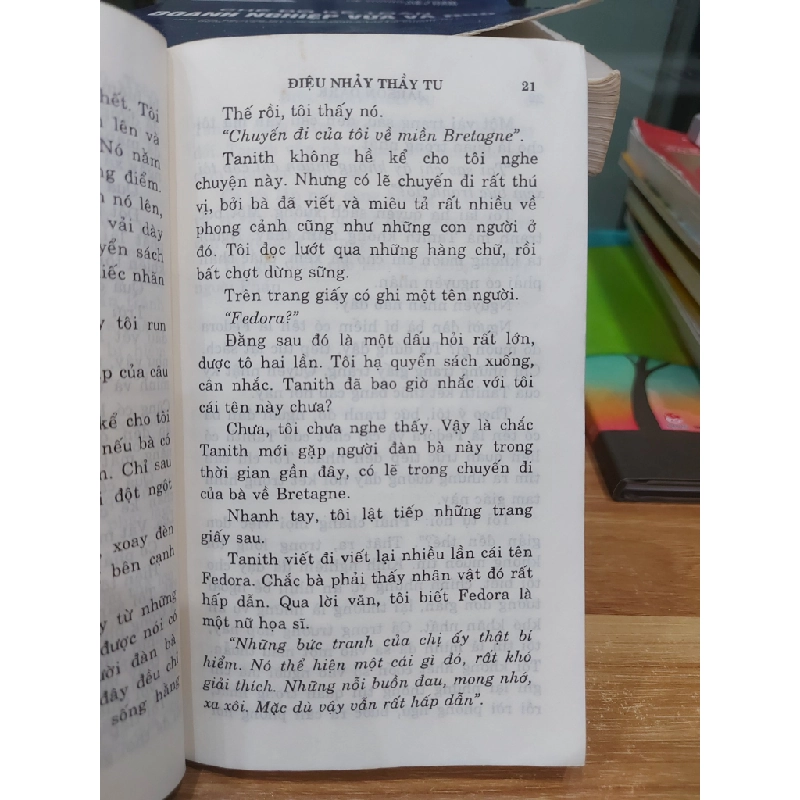 DOANH NGHIỆP VỪA VÀ
hết. Tôi
lên và
Nó nằm
điểm.
nó lên,
vải dày
sách
nhăn
tôi run
của câu
kể cho tôi
nếu bà có
Chỉ sau
đột ngột
xoay đèn
bên cạnh
từ những
được nói có
đàn bà
đây đều chỉ
sống hằng
ĐIỆU NHẢY THẦY TU 21
Thế rồi, tôi thấy nó.
“Chuyến đi của tôi về miền Bretagne”.
Tanith không hề kể cho tôi nghe
chuyện này. Nhưng có lẽ chuyến đi rất thú
vị, bởi bà đã viết và miêu tả rất nhiều về
phong cảnh cũng như những con người ở
đó. Tôi đọc lướt qua những hàng chữ, rồi
bất chợt dừng sững.
Trên trang giấy có ghi một tên người.
“Fedora?”
Đằng sau đó là một dấu hỏi rất lớn,
được tô hai lần. Tôi hạ quyển sách xuống,
cân nhắc. Tanith đã bao giờ nhắc với tôi
cái tên này chưa?
Chưa, tôi chưa nghe thấy. Vậy là chắc
Tanith mới gặp người đàn bà này trong
thời gian gần đây, có lẽ trong chuyến đi
của bà về Bretagne.
Nhanh tay, tôi lật tiếp những trang
giấy sau.
Tanith viết đi viết lại nhiều lần cái tên
Fedora. Chắc bà phải thấy nhân vật đó rất
hấp dẫn. Qua lời văn, tôi biết Fedora là
một nữ họa sĩ.
“Những bức tranh của chị ấy thật bí
hiểm. Nó thể hiện một cái gì đó, rất khó
giải thích. Những nỗi buồn đau, mong nhớ,
xa xôi. Mặc dù vậy vẫn rất hấp dẫn”.